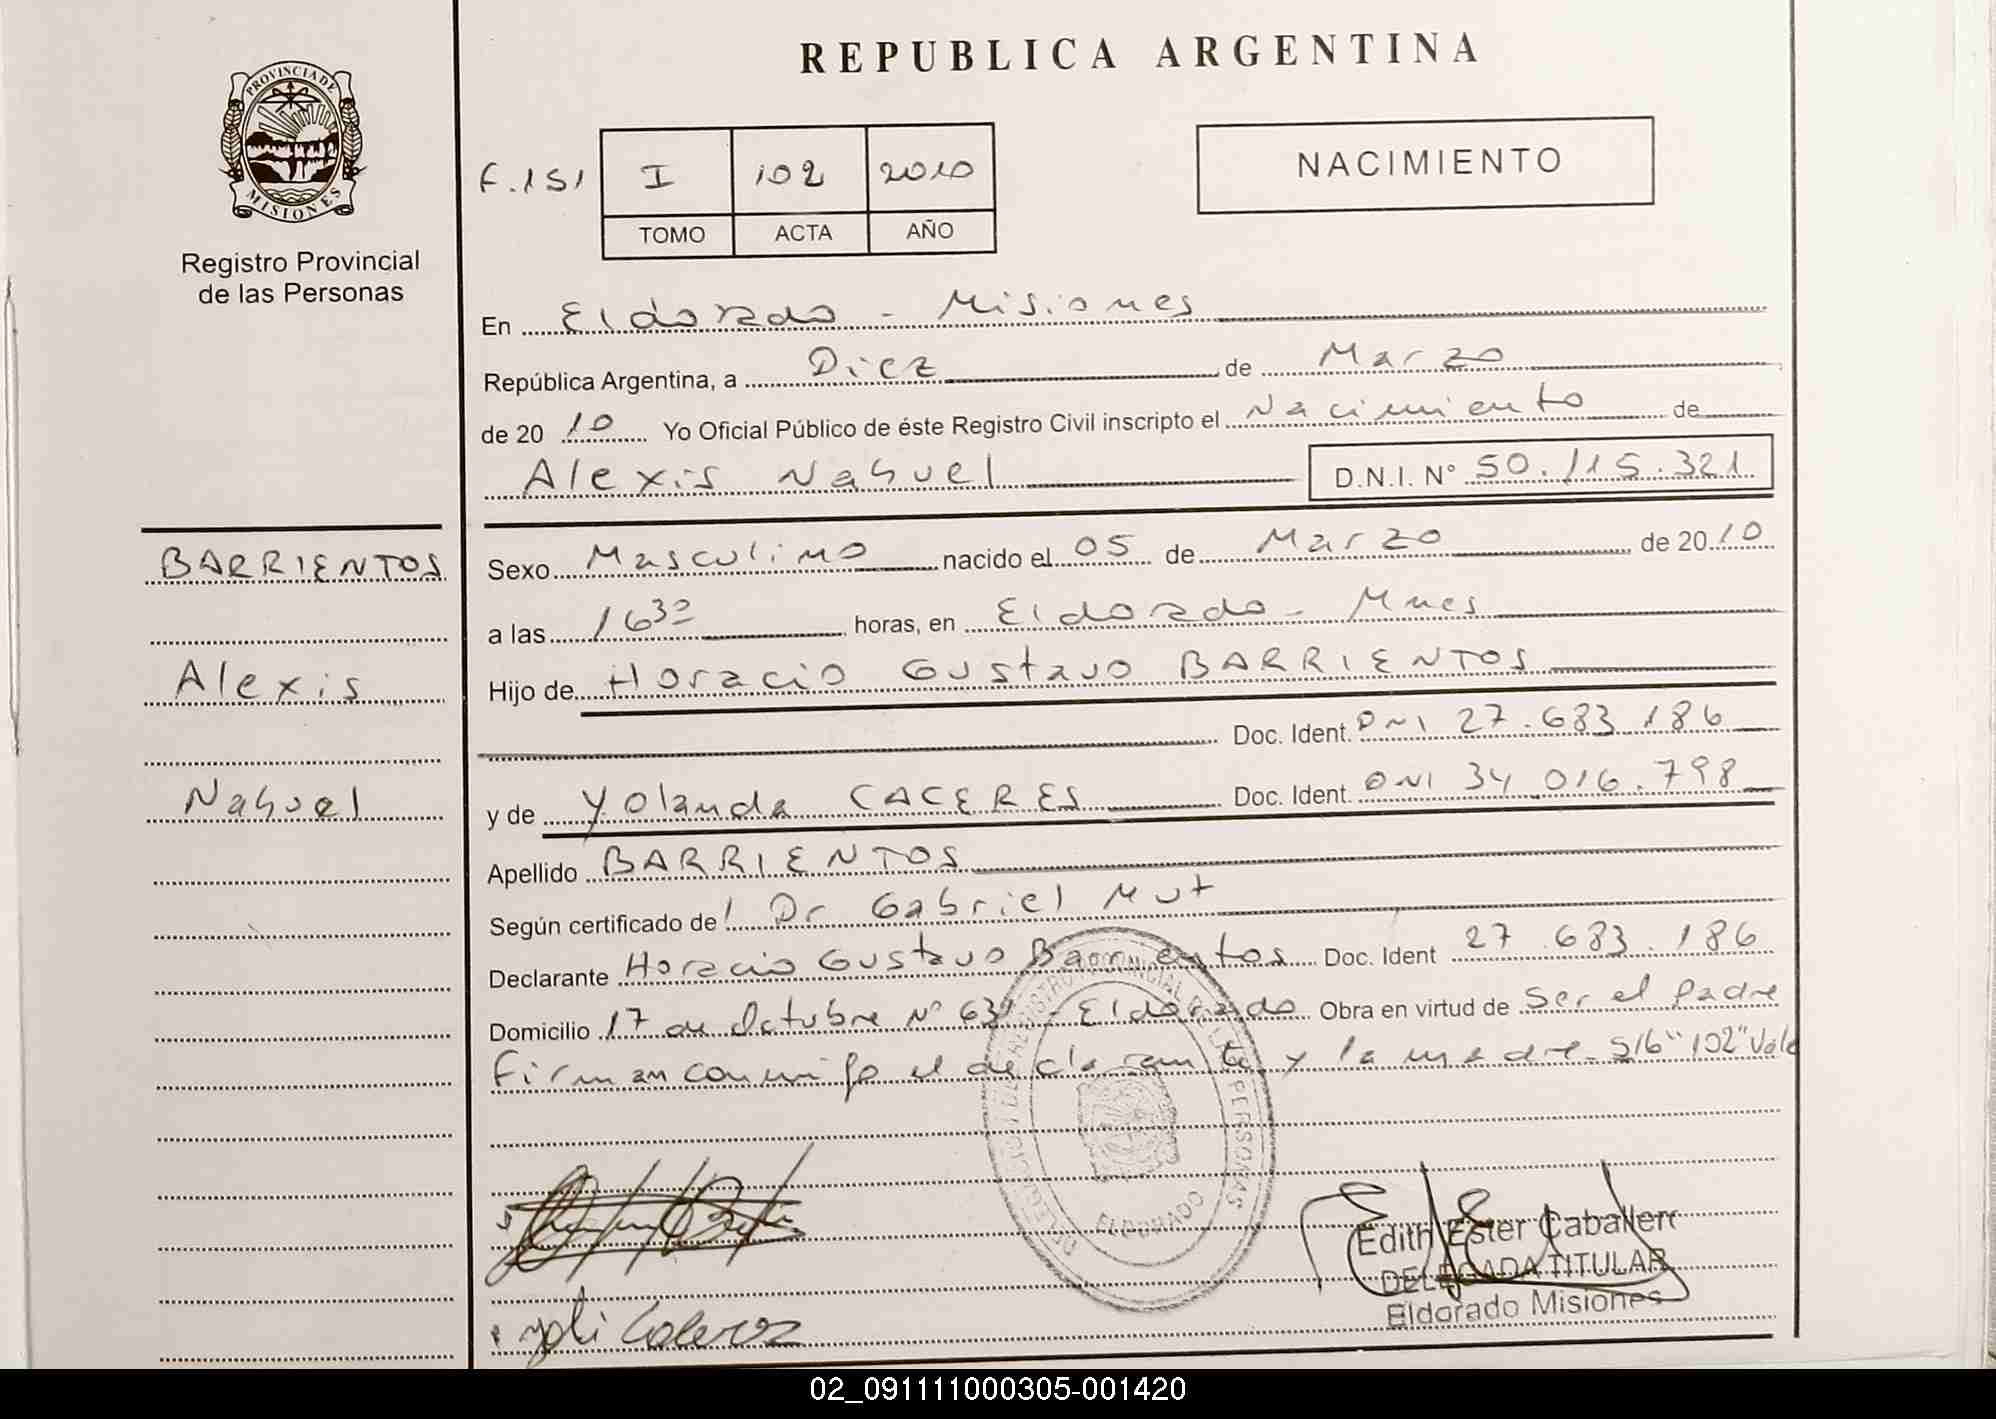 REPUBLICA ARGENTINA
PROVINCIA DE
MISIONES
Registro Provincial
de las Personas
F. 151
I 102 2010
TOMO ACTA AÑO
NACIMIENTO
En Eldorado - Misiones
República Argentina, a Diez de Marzo
de 20 10 Yo Oficial Público de éste Registro Civil inscripto el Nacimiento de
Alexis Nahuel D.N.I. N° 50.115.321
BARRIENTOS
Alexis
Nahuel
Sexo Masculino nacido el 05 de Marzo de 20 10
a las 16 30 horas, en Eldorado - Mnes
Hijo de Horacio Gustavo BARRIENTOS
Doc. Ident. DNI 27.683.186
y de Yolanda CACERES Doc. Ident. DNI 34.016.798
Apellido BARRIENTOS
Según certificado de Dr Gabriel Mut
Declarante Horacio Gustavo Barrientos Doc. Ident 27.683.186
Domicilio 17 de Octubre N° - Eldorado Obra en virtud de Ser el Padre
Firman conmigo el declarante y la madre. S/6 "102" Vale
DELEGACION DEL REGISTRO PROVINCIAL DE LAS PERSONAS
ELDORADO
Edith Ester Caballero
DELEGADA TITULAR
Eldorado Misiones
02_091111000305-001420